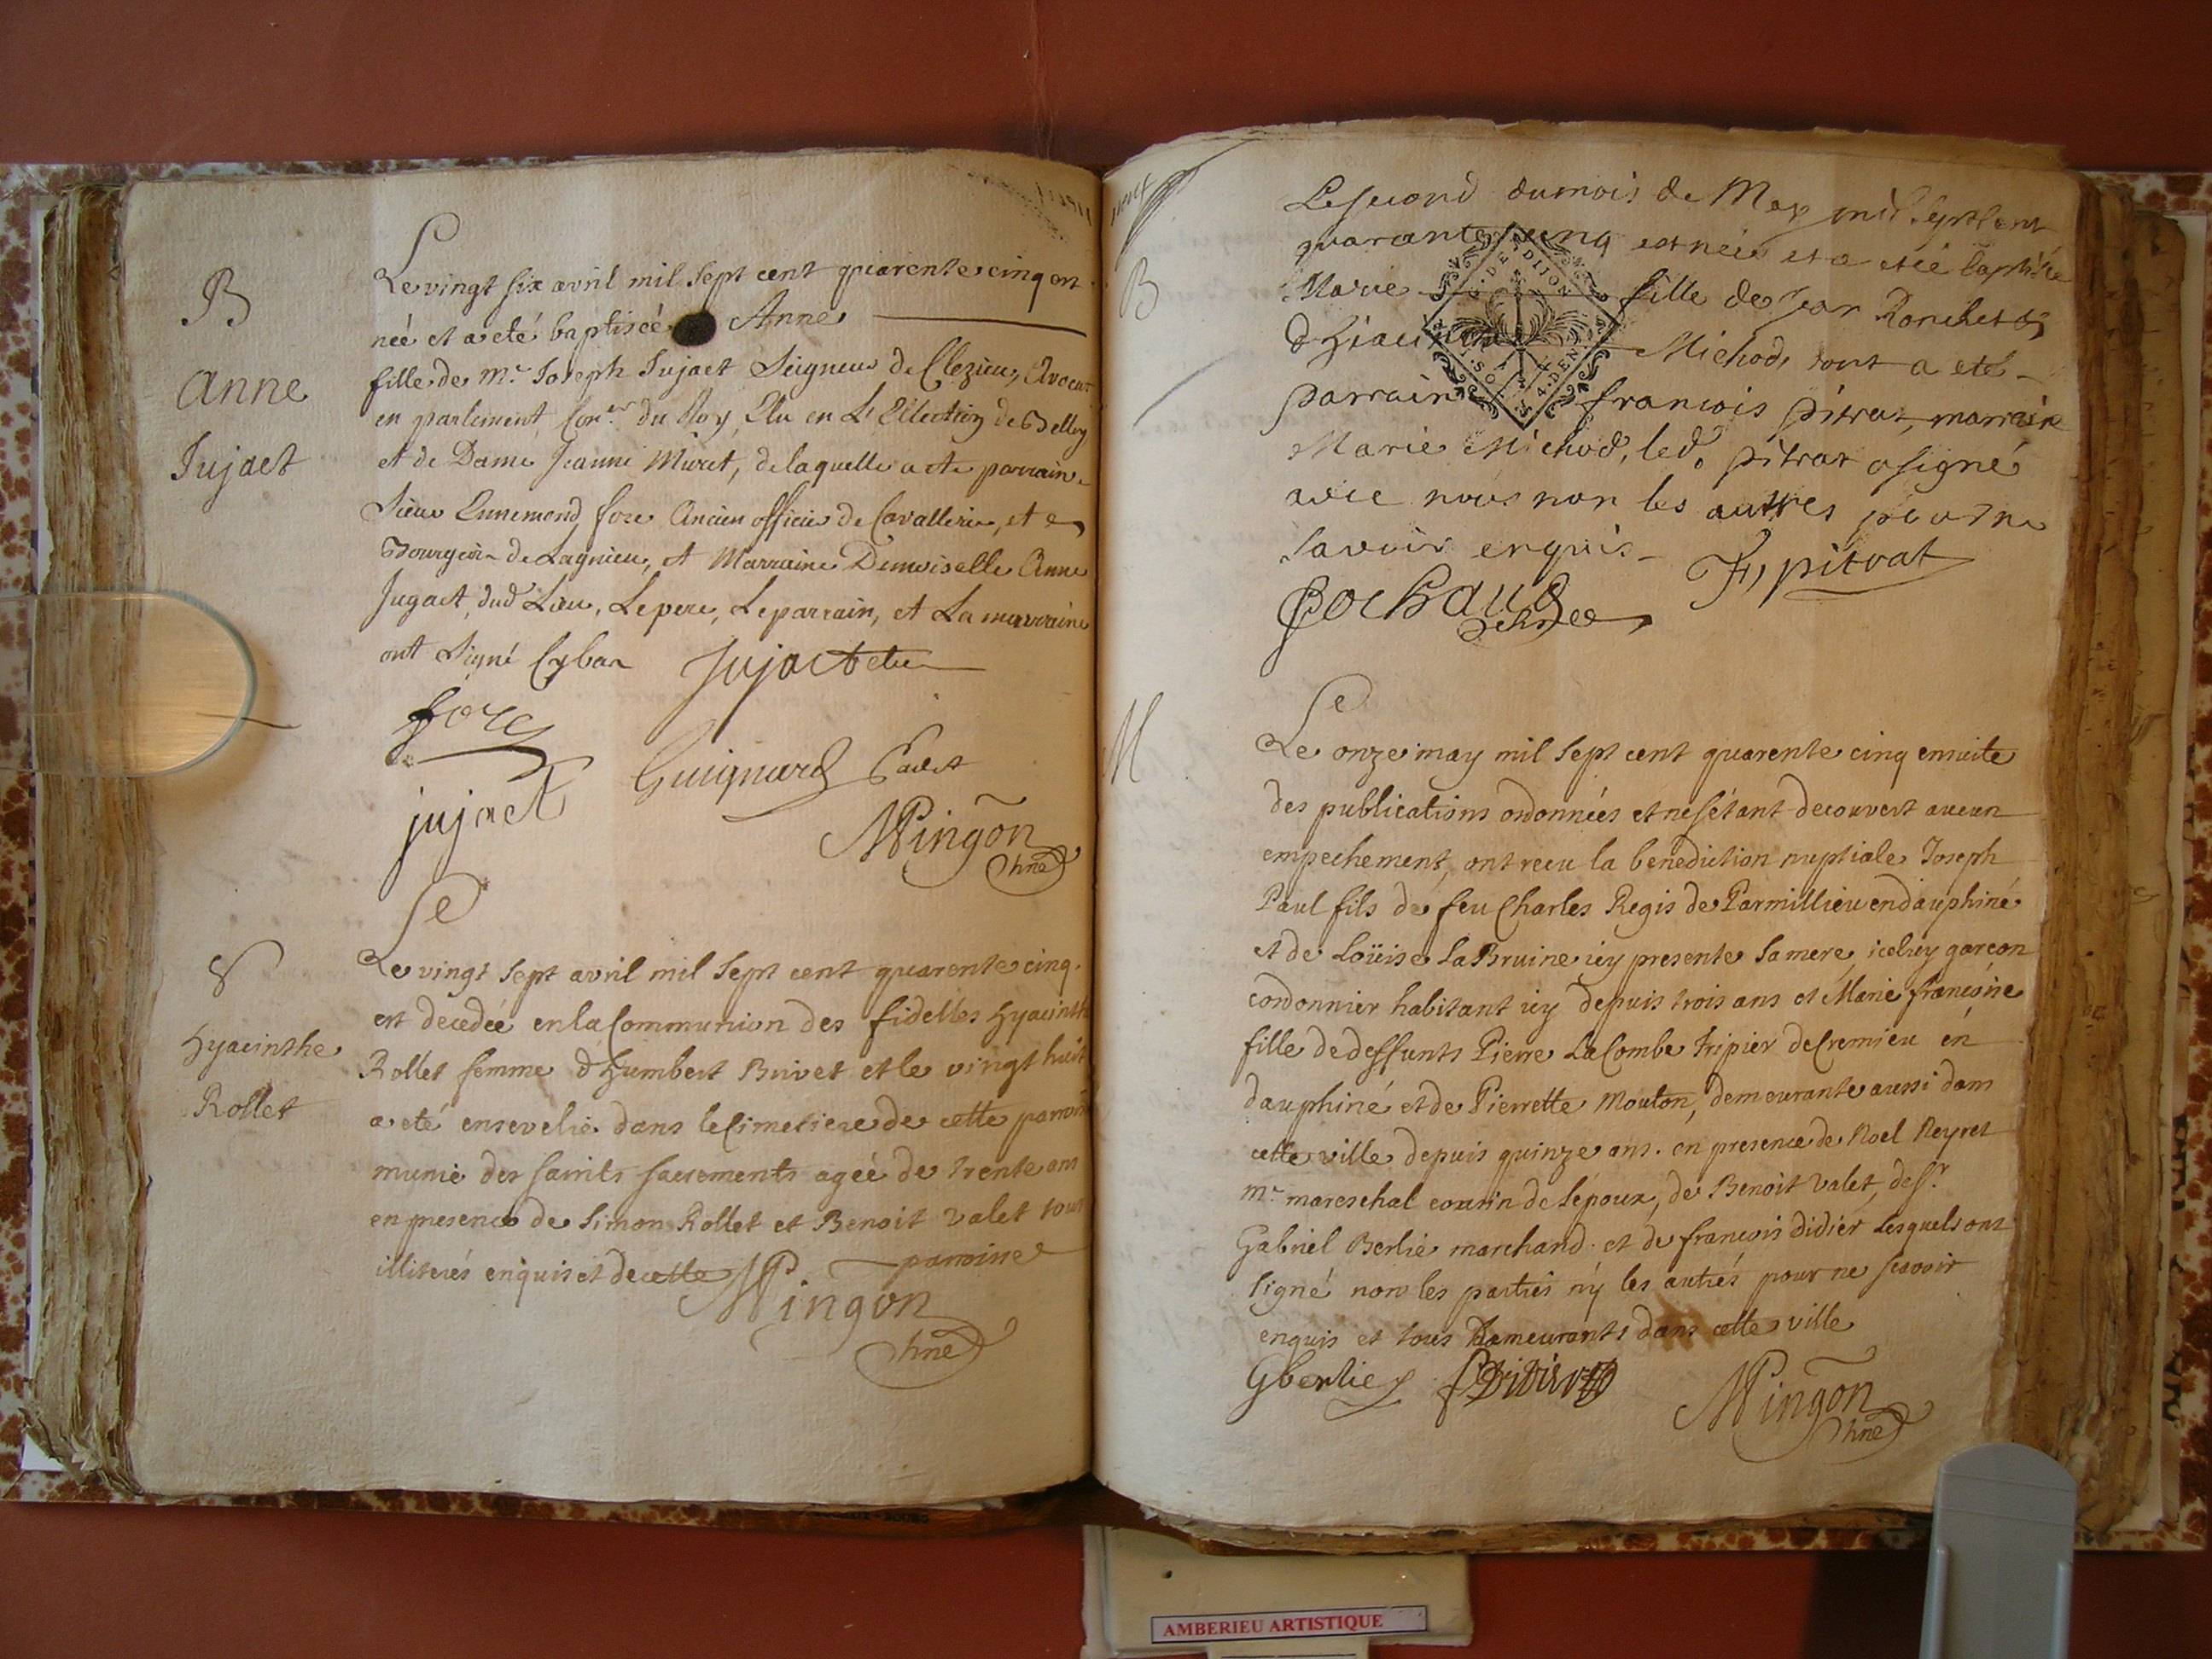 B
Anne
Jujact
Le vingt six avril mil sept cent quarente cinq est
née et a eté baptisée Anne
fille de mr. Joseph Jujact Seigneur de Clezieu, Avocat
en parlement, Coner. du Roy, Elu en L'Ellection de Belley
et de Dame Jeanne Muret, delaquelle a ete parrain
Sieur Ennemond fore Ancien officier de Cavallerie, et
Bourgeois de Lagnieu, et Marraine Demoiselle Anne
Jugact, dud Lieu, Le pere, Le parrain, et La marraine
ont Signé Cybas Jujact elu
fore
Guignard
jujact
Mingon
Le
8
Hyacinthe
Rollet
Le vingt Sept avril mil Sept cent quarente cinq
est decedeé en la Communion des fidelles Hyacinth
Rollet femme d'humbert Brivet et le vingt huit
a eté ensevelie dans le Cimetiere de cette parroiss
munie des saints sacrements ageé de trente ans
en presence de Simon Rollet et Benoit valet tous
illiterés enquis et de cette paroisse
Mingon
B
Le second dumois de May mil Sept Cent
quarante cinq est née et a eté baptisée
Marie fille de Jean Ronchet &
d'hiacinthe Michod, dont a eté
parrain francois pitrat, marraine
Marie Michod, led. pitrat a signé
avec nous non les autres pour ne
savoir enquis
F, pitrat
Cochaud
G. DE DIJON
1. SOL 4. DEN.
M
Le
Le onze may mil Sept cent quarente cinq ensuite
des publications ordonnées et ne sétant decouvert aucun
empechement, ont recu la benediction nuptiale Joseph
Paul fils de feu Charles Regis de Parmillieu en dauphiné
et de Loüise La Bruine icy presente Sa mere, iceluy garcon
cordonnier habitant icy depuis trois ans et Marie francoise
fille de deffunts Pierre La Combe tripier de Cremieu en
dauphiné et de Pierrette Mouton, demeurante aussi dans
cette ville depuis quinze ans. en presence de Noel Reyret
mr. mareschal cousin de Lépoux, de Benoit Valet, de sr.
Gabriel Berlie marchand et de francois didier Lesquels ont
signé non les parties ny les autres pour ne scavoir
enquis et tous Demeurants dans cette ville
Gberlie
f Didier
Mingon
AMBERIEU ARTISTIQUE